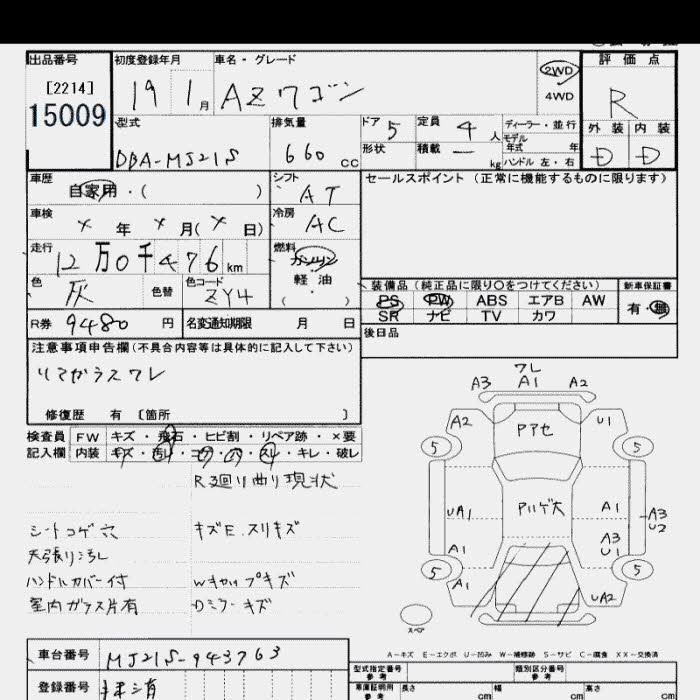 出品番号
[2214]
15009
初度登録年月
19 1月
車名・グレード
AZワゴン
2WD
4WD
評価点
R
外装 内装
D D
型式
DBA-MJ21S
排気量
660 cc
ドア 5
定員 4 人
形状
積載 ー kg
ディーラー・並行
モデル
年式 年
ハンドル 左・右
車歴
自家用・( )
シフト
AT
セールスポイント (正常に機能するものに限ります)
車検
× 年 × 月(× 日)
冷房
AC
走行
12万0千476km
燃料
ガソリン
軽油
( ・ )
色
灰
色替
色コード
ZY4
装備品(純正品に限り○をつけてください)
PS PW ABS エアB AW
SR ナビ TV カワ
新車保証書
有・無
R券 9480 円
名変通知期限 月 日
後日品
注意事項申告欄(不具合内容等は具体的に記入して下さい)
リアガラスワレ
修復歴 有 〔箇所 〕
検査員
記入欄
FW キズ・飛石・ヒビ割・リペア跡・×要
内装 キズ・汚レ・コゲ・穴・スレ・キレ・破レ
R廻り曲り現状
シートコゲ穴 キズE.スリキズ
天張リ汚レ
ハンドルカバー付 Wキャップキズ
室内ガラス片有 Dミラーキズ
ワレ
A3 A1 A2
A2 Pアセ U1
5 5
UA1 Pハゲ大 A1 A3
U2
A3
U1
A1
5 5
A1 UA2
スペア
A-キズ E-エクボ U-凹み W-補修跡 S-サビ C-腐食 XX-交換済
車台番号 MJ21S-943763
登録番号 抹消
型式指定番号
参考
類別区分番号
参考
車庫証明用
参考
長さ cm 幅 cm 高さ cm